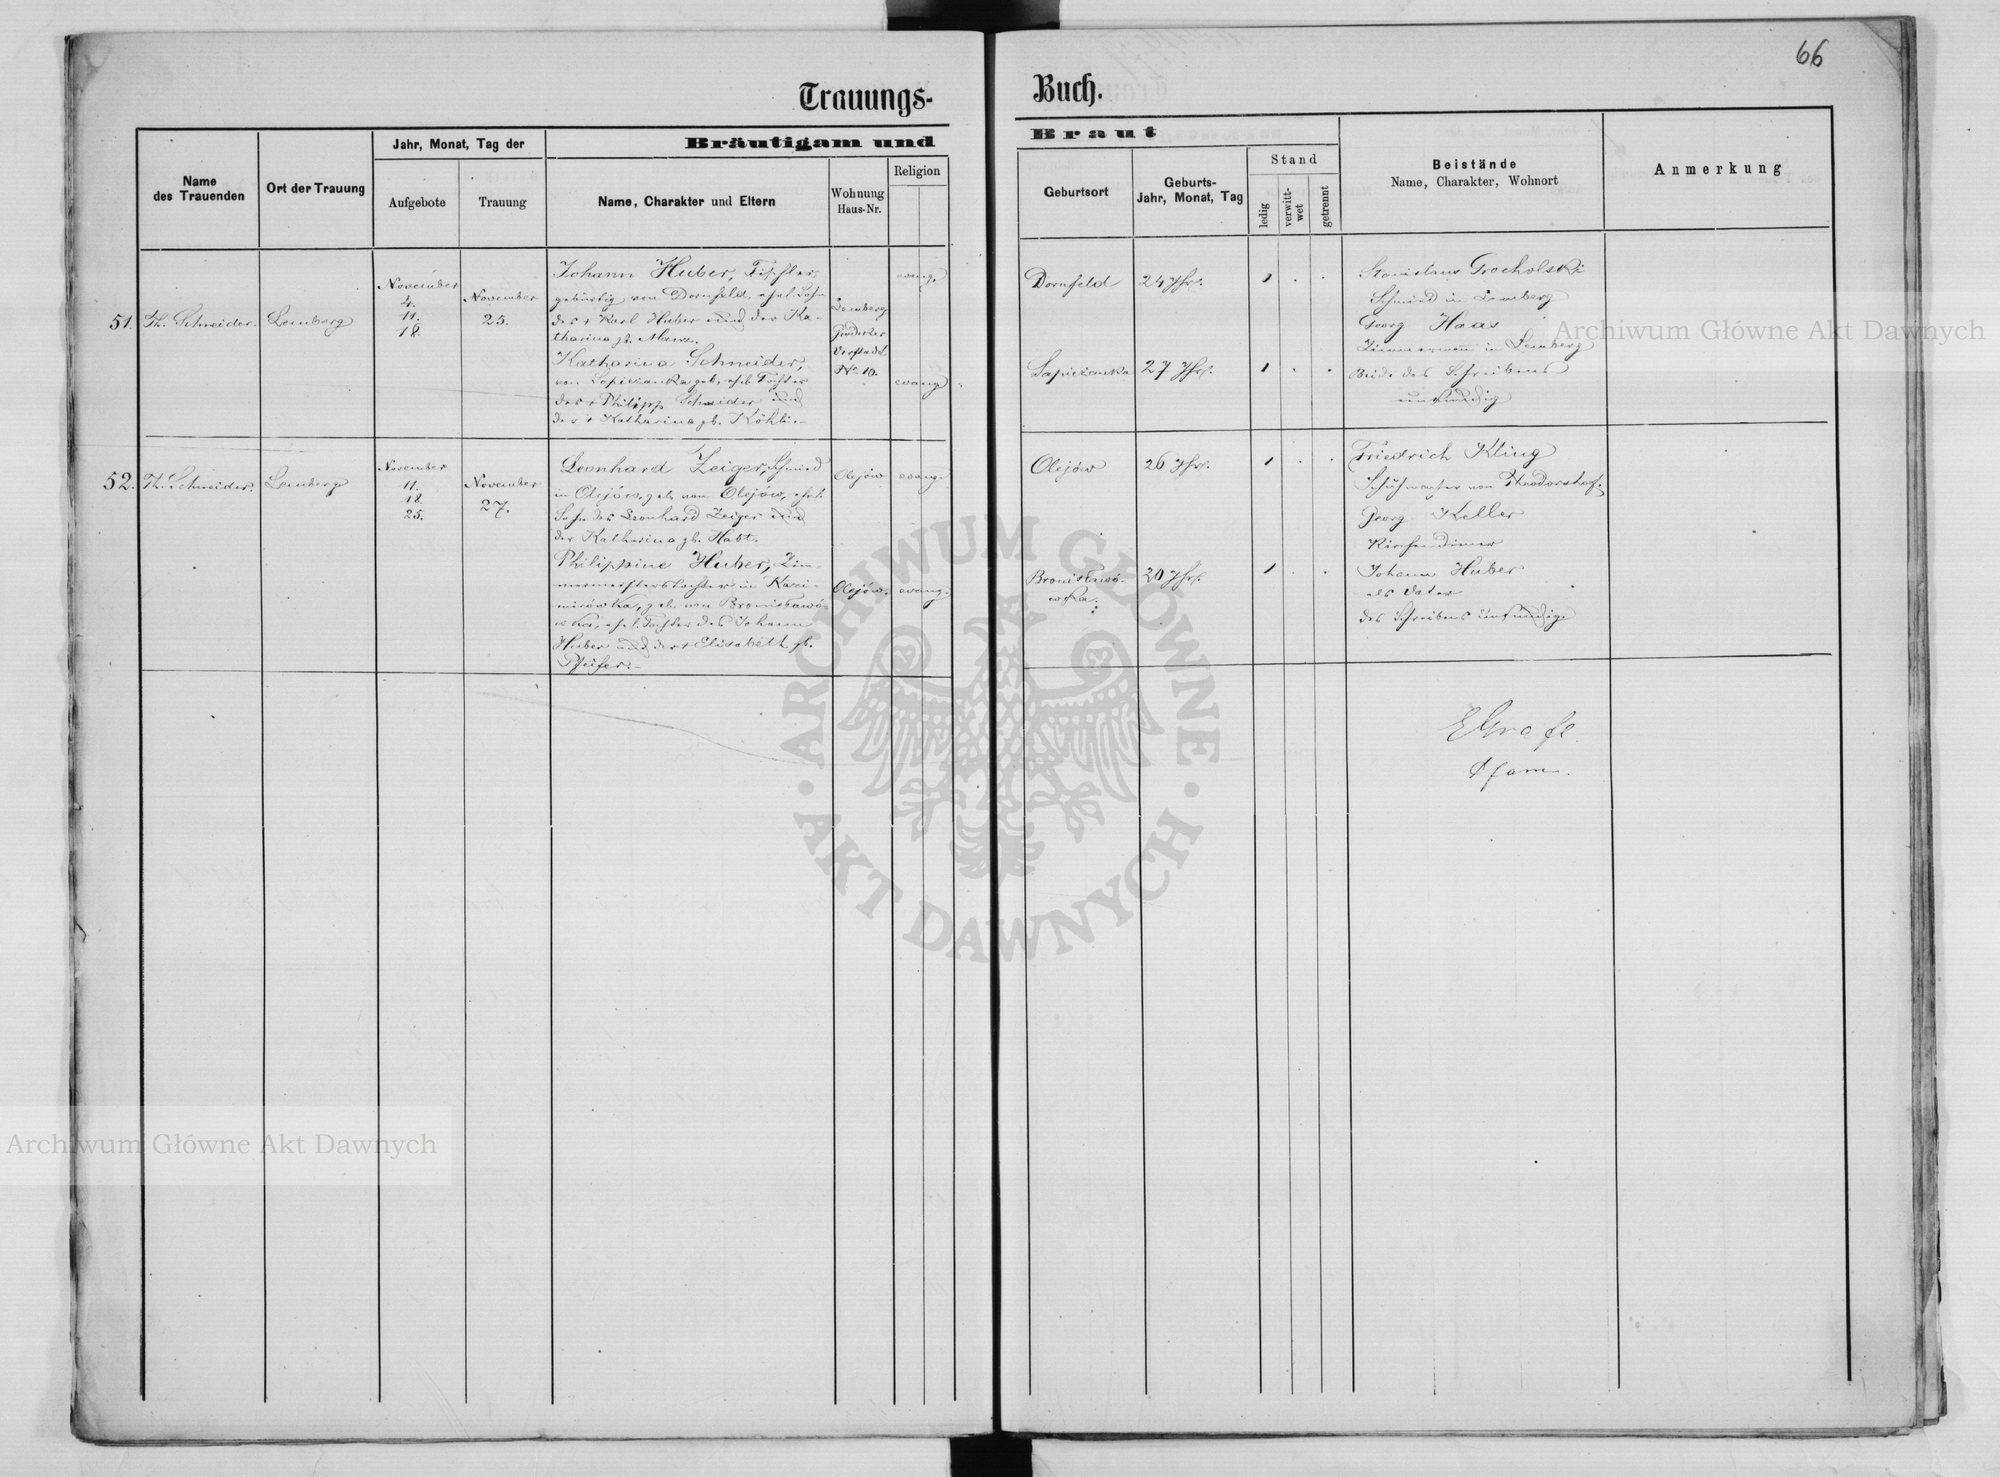 66
Trauungs- Buch.
Name des Trauenden
Ort der Trauung
Jahr, Monat, Tag der
Aufgebote
Trauung
Bräutigam und Braut
Name, Charakter und Eltern
Wohnung Haus-Nr.
Religion
Geburtsort
Geburts-
Jahr, Monat, Tag
Stand
ledig
verwitt-
wet
getrennt
Beistände
Name, Charakter, Wohnort
Anmerkung
51. Th. Schneider.
Lemberg
November
4.
11.
18.
November
25.
Johann Huber, Tischler,
gebürtig von Dornfeld, ehel. Sohn
des + Karl Huber und der Ka-
tharina gb. Manz.
Katharina Schneider,
von Sapieżanka geb., ehel. Tochter
des + Philipp Schneider und
der + Katharina gb. Köhli.-
Lemberg
Grodeker
Vorstadt
No. 10.
evang.
evang.
Dornfeld
24 Jhr.
Sapieżanka
27 Jhr.
Stanislaus Grocholski
Schmied in Lemberg
Georg Haas
Zimmermann in Lemberg
Beide des Schreibens
unkundig
52. Th. Schneider.
Lemberg
November
11.
18.
25.
November
27.
Leonhard Zeiger, Schmied
in Olejów, geb. von Olejów, ehel.
Sohn des Leonhard Zeiger und
der Katharina gb. Habt.
Philippine Huber, Zim-
mermeisterstochter in Kazi-
mirówka, geb. von Bronisławó-
wka, ehel. Tochter des Johann
Huber und der + Elisabeth gb.
Pfeifer.-
Olejów
evang.
Olejów.
evang.
Olejów
26 Jhr.
Bronisławó-
wka.
20 Jhr.
Friedrich Kling
von Theodorshof.
Georg Keller
Kirchendiener
Johann Huber
als Vater
des Schreibens unkundig
Pfarrer.
Archiwum Główne Akt Dawnych
Archiwum Główne Akt Dawnych
ARCHIWUM GŁÓWNE
AKT DAWNYCH